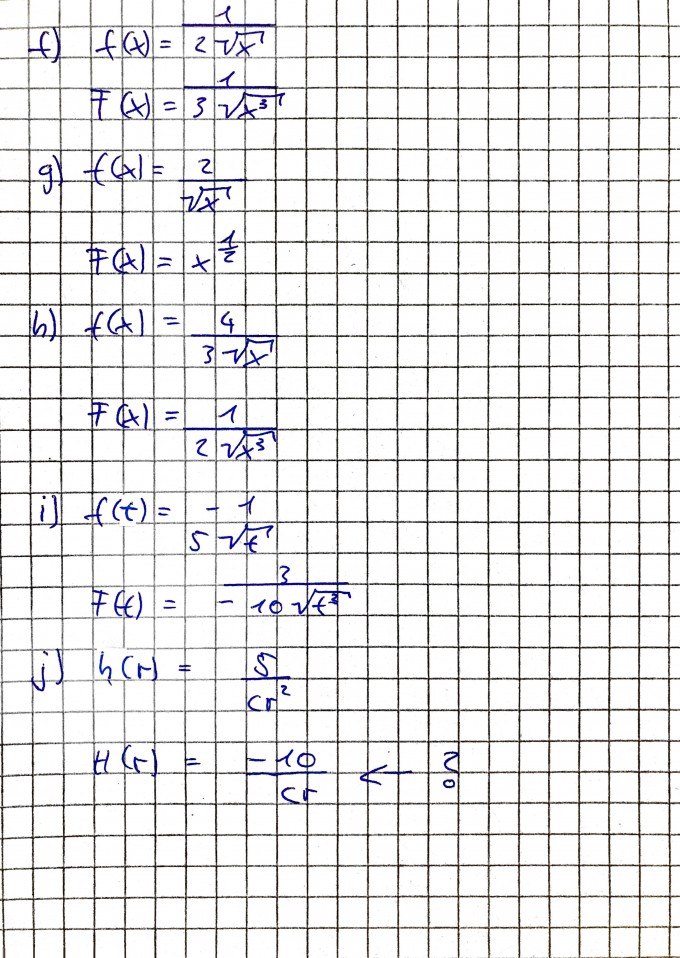 f) f(x) = 1/(2√x)
F(x) = 1/(3√x³)
g) f(x) = 2/√x
F(x) = x^(1/2)
h) f(x) = 4/(3√x)
F(x) = 1/(2√x³)
i) f(t) = - 1/(5√t)
F(t) = - 3/(10√t³)
j) h(r) = 5/(cr²)
H(r) = -10/(cr) ← ?